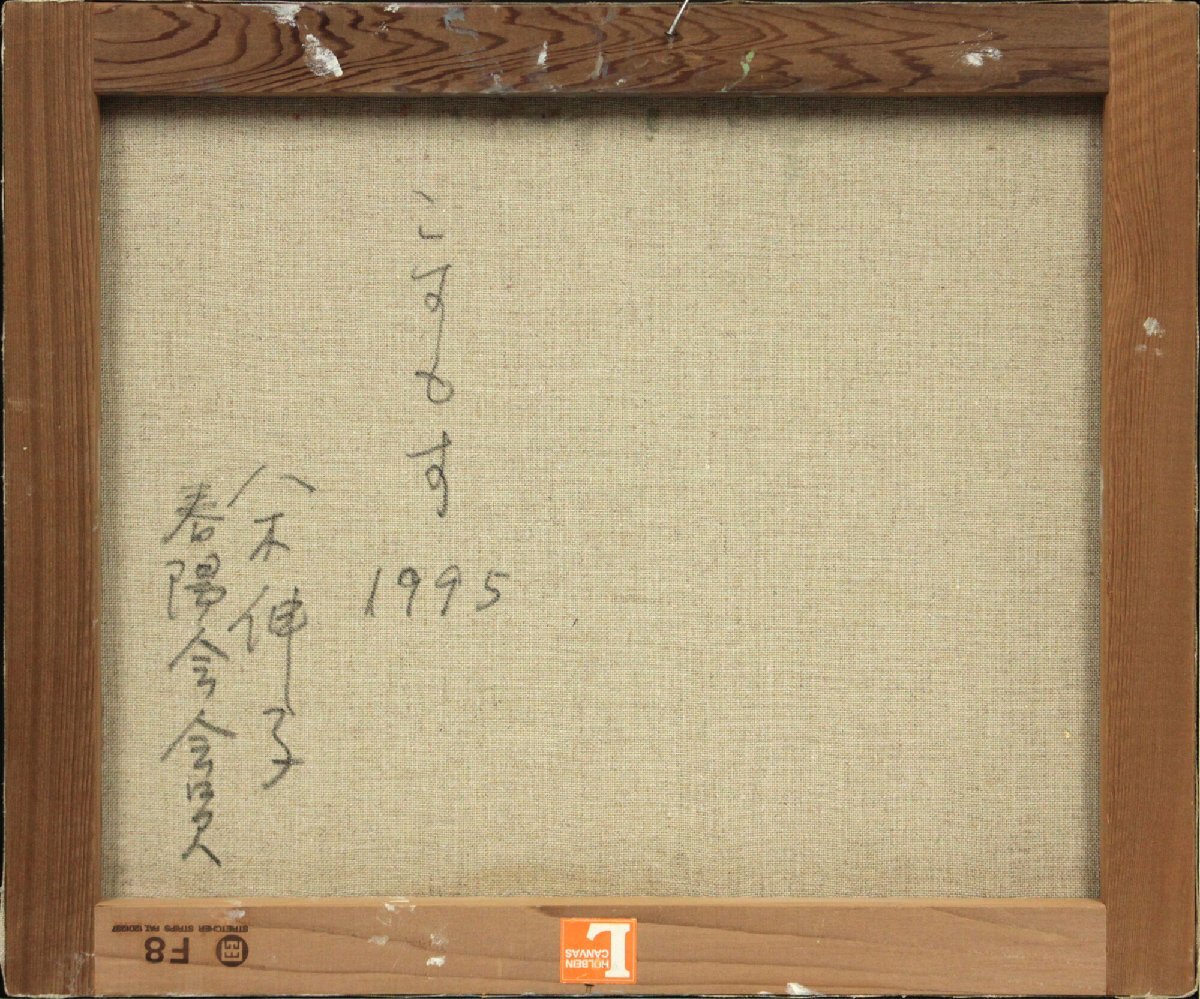 こすもす
1995
八木伸子
春陽会会員
F8
STRETCHER STRIPS PAT.
L
HOLBEIN
CANVAS